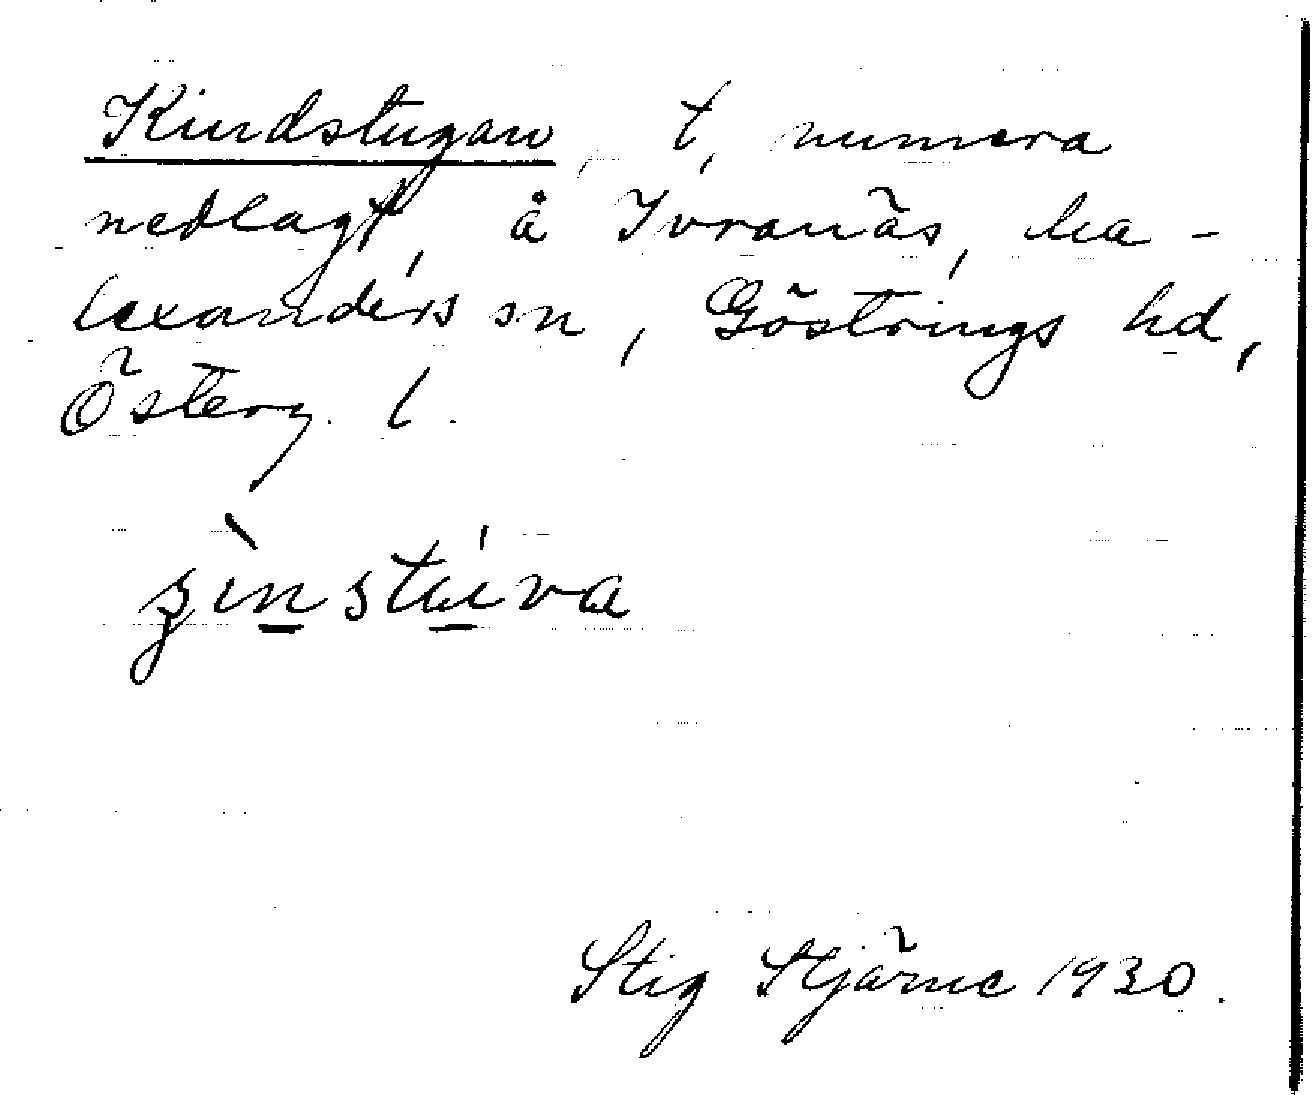 Kindstugan, t, numera
nedlagt, å Ivranäs, Ma-
lexanders sn, Göstrings hd,
Österg. l.
Stig Stjärne 1930.